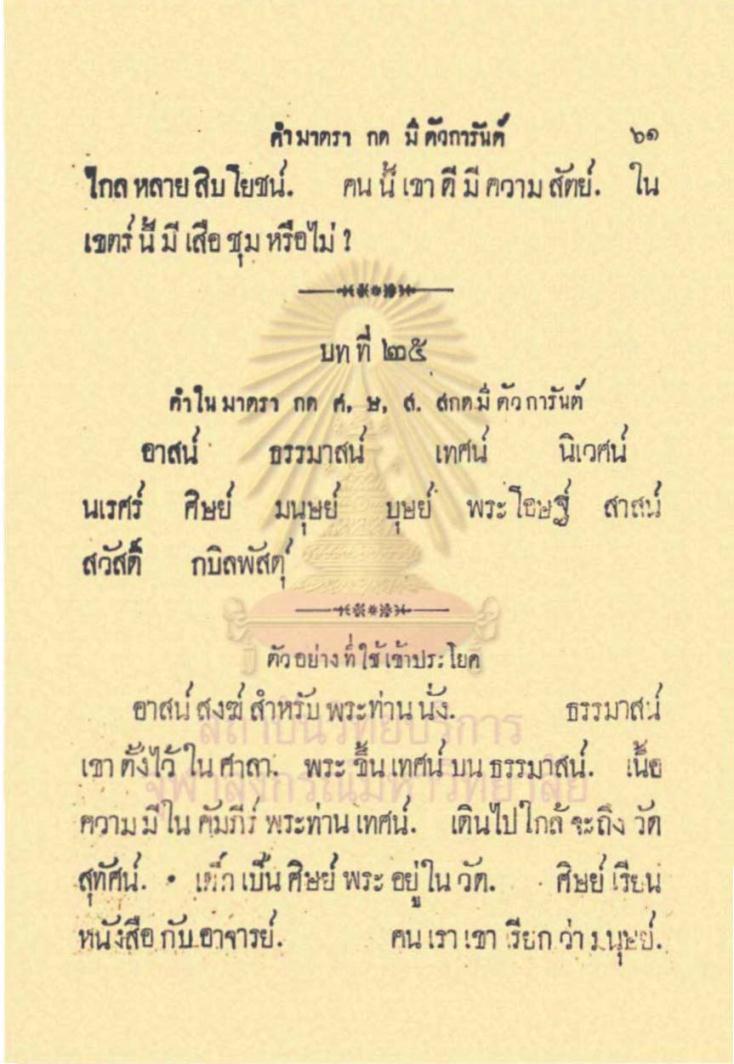 คำมาตรา กด มีตัวการันต์ ๖๑
ไกล หลาย สิบ โยชน์. คน นี้ เขา ดี มี ความ สัตย์. ใน
เขตร์ นี้ มี เสือ ชุม หรือไม่ ?
บท ที่ ๒๕
คำใน มาตรา กด ศ, ษ, ส. สกด มี ตัว การันต์
อาสน์ ธรรมาสน์ เทศน์ นิเวศน์
นเรศร์ ศิษย์ มนุษย์ บุษย์ พระโอษฐ์ สาสน์
สวัสดิ์ กบิลพัสดุ์
ตัวอย่าง ที่ ใช้ เข้า ประโยค
อาสน์ สงฆ์ สำหรับ พระท่าน นั่ง. ธรรมาสน์
เขา ตั้งไว้ ใน ศาลา. พระ ขึ้น เทศน์ บน ธรรมาสน์. เนื้อ
ความ มี ใน คัมภีร์ พระท่าน เทศน์. เดินไป ใกล้ จะถึง วัด
สุทัศน์. เด็ก เป็น ศิษย์ พระ อยู่ ใน วัด. ศิษย์ เรียน
หนังสือ กับ อาจารย์. คน เรา เขา เรียก ว่า มนุษย์.
สถาบันวิทยบริการ
จุฬาลงกรณ์มหาวิทยาลัย